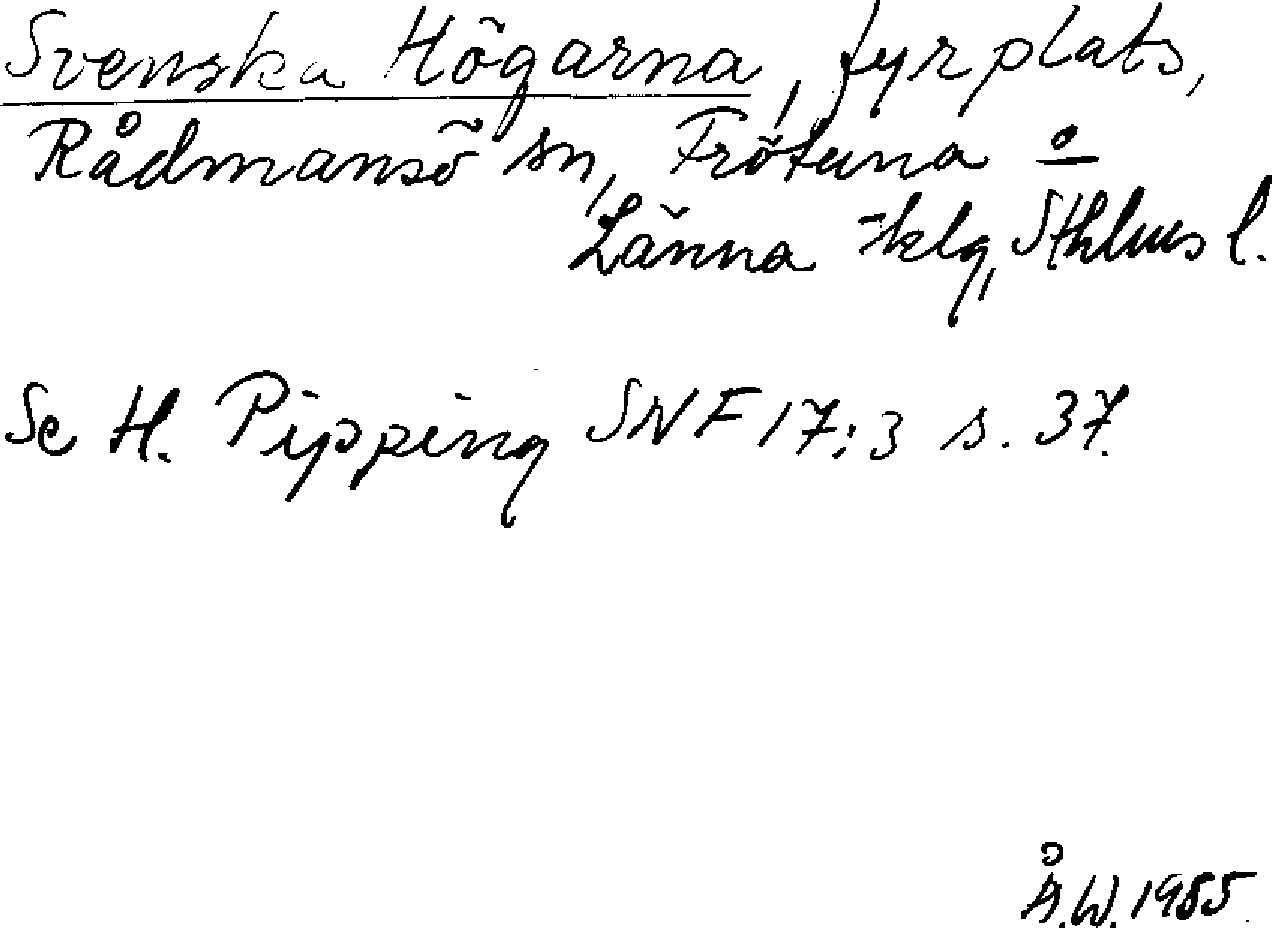 Svenska Högarna, fyrplats,
Rådmansö sn, Frötuna o
Länna sklg, Sthlms l.
Se H. Pipping SNF 17:3 s. 37.
Å.W. 1985